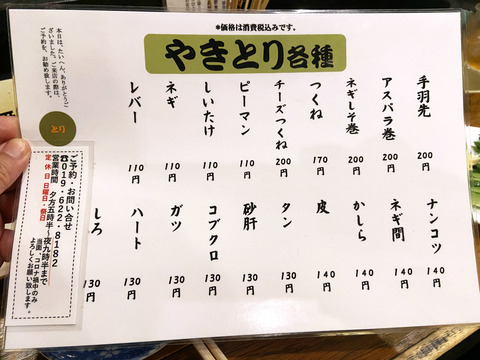 *価格は消費税込みです。
やきとり各種
手羽先 200円
アスパラ巻 200円
ネギしそ巻 200円
つくね 170円
チーズつくね 200円
ピーマン 110円
しいたけ 110円
ネギ 110円
レバー 110円
ナンコツ 140円
ネギ間 140円
かしら 140円
皮 140円
タン 130円
砂肝 130円
コブクロ 130円
ガツ 130円
ハート 130円
しろ 130円
本日は、たいへん、ありがとうご
ざいました。ご来店の際は、
ご予約を、お勧め致します。
とり
ご予約・お問い合せ
☎019・622・8182
営業時間 夕方五時半～夜九時半まで
定休日 日曜日・祭日
当面、コロナ禍中のみ
よろしくお願い致します。